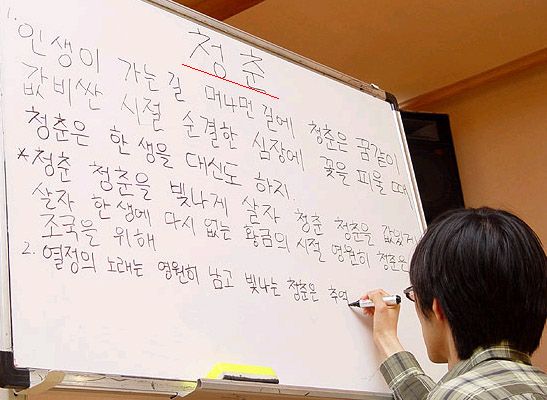 청춘
1. 인생이 가는 길 머나먼 길에 청춘은 꿈같이
값비싼 시절 순결한 심장에 꽃을 피울 때
청춘은 한 생을 대신도 하지.
*청춘 청춘을 빛나게 살자 청춘 청춘을 값있게
살자 한 생에 다시 없는 황금의 시절 영원히 청춘은
조국을 위해
2. 열정의 노래는 영원히 남고 빛나는 청춘은 추억